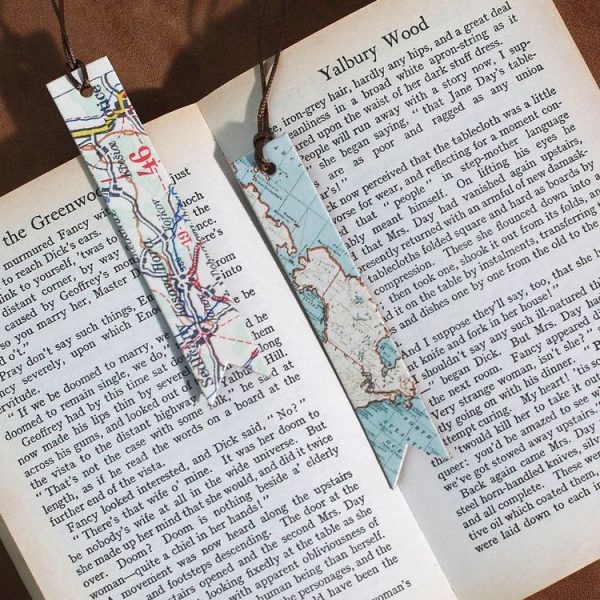 the Greenwood
murmured Fancy with just
to reach Dick's ears.
nk to yourself, 'twas to
distant corner, by way
caused by Geoffrey's
so you marry her, Master D
d it'."
Pray don't say such things, En
ncy severely, upon which Enoc
rvitude.
"If we be doomed to marry, we
doomed to remain single, we do,"
Geoffrey had by this time sat do them
now made his lips thin by severe to long
across his gums, and looked out of
the vista to the distant highway Yalbury Hill.
"That's not the case with some he said at
length, as if he read the words on a board at the
further end of the vista.
Fancy looked interested, and Dick said, "No?"
"There's that wife o' mine. It was her doom to
be nobody's wife at all in the wide universe. But
she made up her mind that she would, and did it twice
over. Doom? Doom is nothing beside a' elderly
woman—quite a chiel in her hands!"
A movement was now heard along the upstairs
and footsteps descending. The door at the
stairs opened and the second Mrs. Day
looking fixedly at the table as she
with apparent obliviousness of
human being than herself.
the personages, and the
ld have been the
woman's
46
19
Yalbury Wood
e, iron-grey hair, hardly any hips, and a great deal
eanliness in a broad white apron-string as it
ared upon the waist of her dark stuff dress.
people will run away with a story now, I sup-
she began saying, "that Jane Day's table-
are as poor and ragged as any union
r's!"
k now perceived that the tablecloth was a little
orse for wear, and reflecting for a moment con-
that "people" in step-mother language
bly meant himself. On lifting his eyes he
that Mrs. Day had vanished again upstairs,
presently returned with an armful of new damask-
tablecloths folded square and hard as boards by
compression. These she flounced down into a
then took one, shook it out from its folds, and
d it on the table by instalments, transferring
s and dishes one by one from the old to the
d I suppose they'll say, too, that she ha
nt knife and fork in her house!"
I shouldn't say any such ill-natured thi
" began Dick. But Mrs. Day had
the next room. Fancy appeared di
Very strange woman, isn't she?"
y going on with his dinner. "B
ttempt curing. My heart! 'tis
that would kill her to take it out
queer: you'd be amazed to see
we've got stowed away upstairs.
Back again came Mrs. Day
steel horn-handled knives, silve
and all complete. These were
tive oil which coated them, a
were laid down to each i